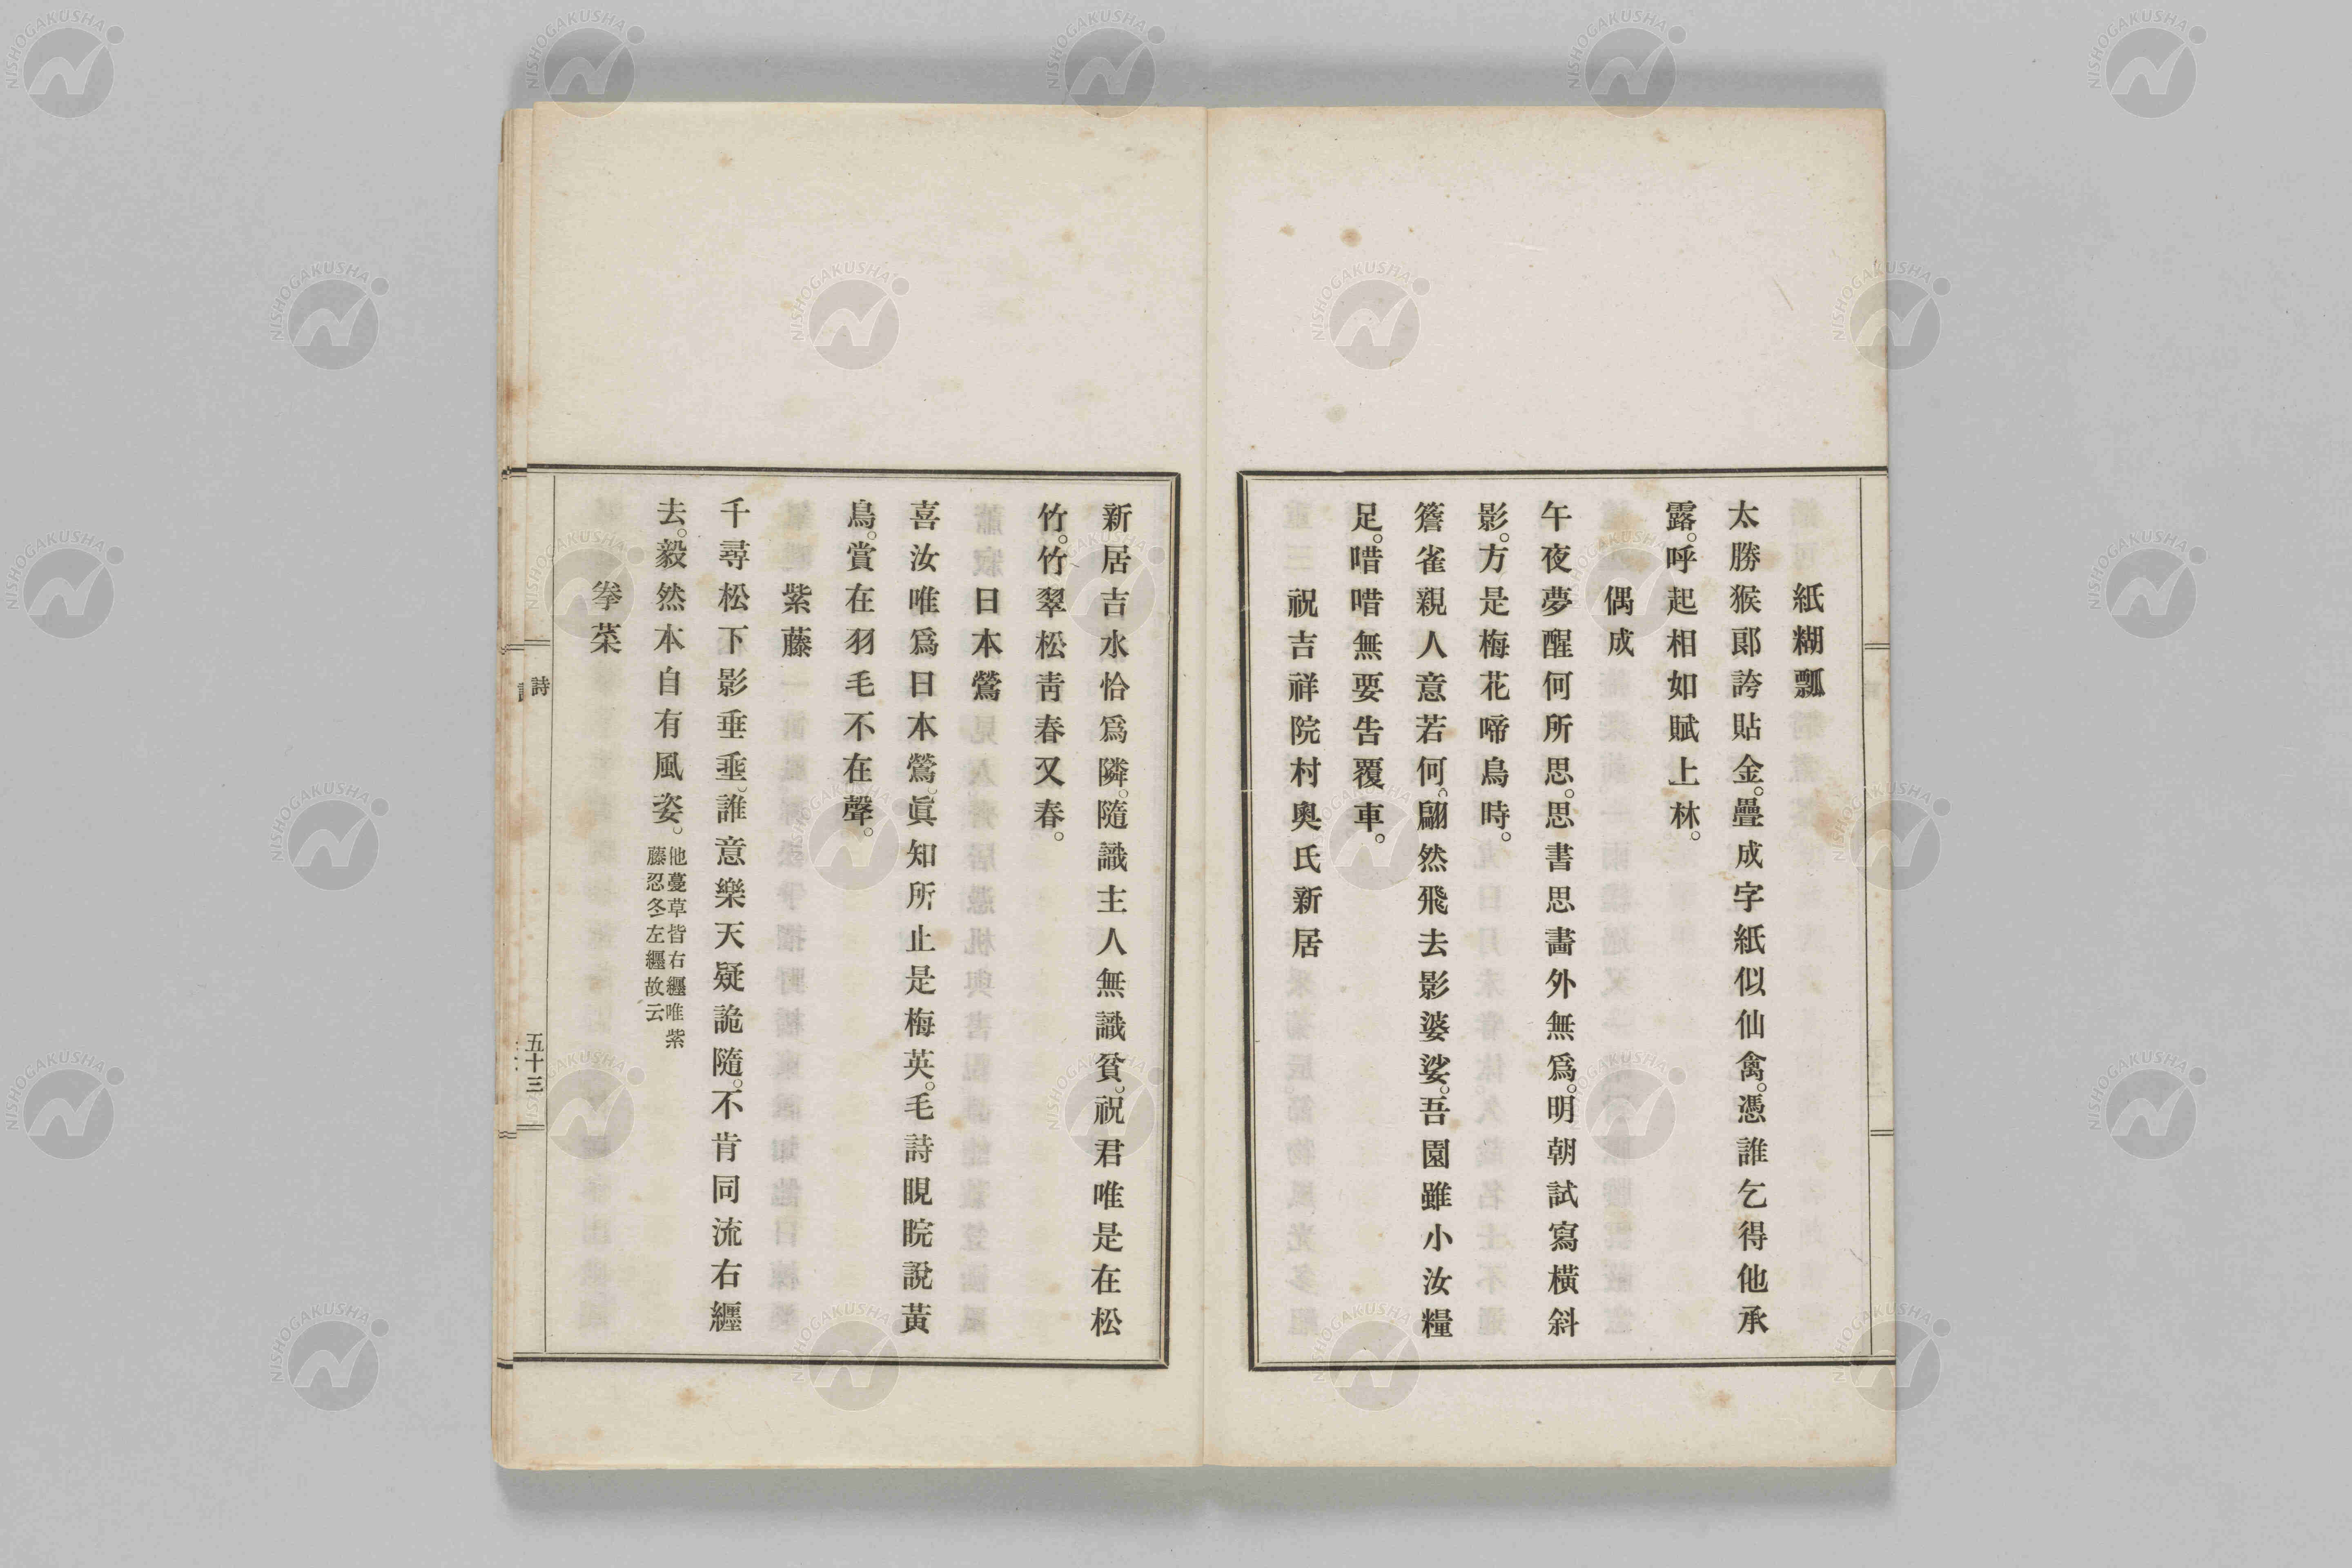 紙糊瓢
太勝猴郞誇貼金。疊成字紙似仙禽。憑誰乞得他承
露。呼起相如賦上林。
偶成
午夜夢醒何所思。思書思畵外無爲。明朝試寫橫斜
影。方是梅花啼鳥時。
簷雀親人意若何。翩然飛去影婆娑。吾園雖小汝糧
足。唶唶無要告覆車。
祝吉祥院村奥氏新居
新居吉水恰爲隣。隨識主人無識貧。祝君唯是在松
竹。竹翠松靑春又春。
日本鶯
喜汝唯爲日本鶯。眞知所止是梅英。毛詩睍睆說黃
鳥。賞在羽毛不在聲。
紫藤
千尋松下影垂垂。誰意樂天疑詭隨。不肯同流右纒
去。毅然本自有風姿。
他蔓草皆右纒唯紫
藤忍冬左纒故云
拳菜
詩
五十三
NISHOGAKUSHA